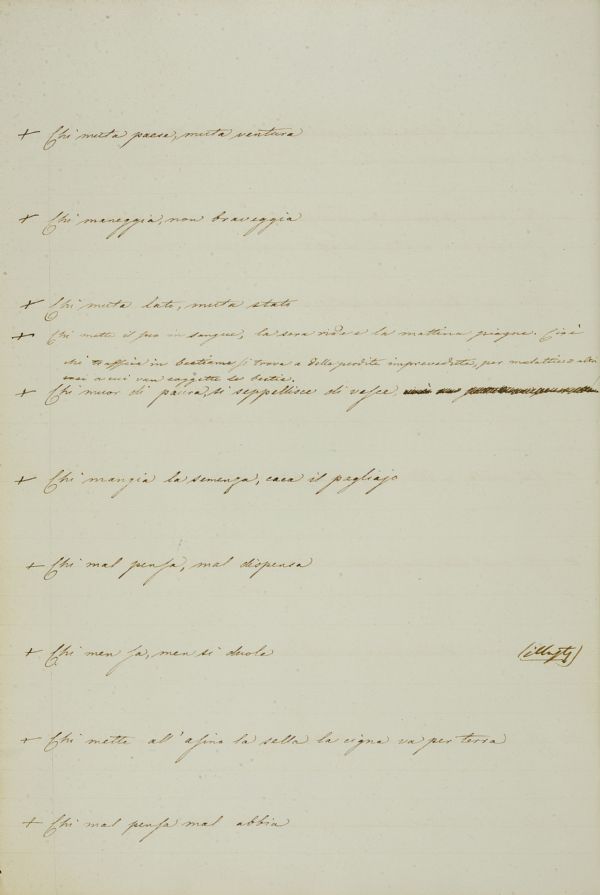 + Chi muta paese, muta ventura
+ Chi maneggia, non braveggia
+ Chi muta lato, muta stato
+ Chi mette il suo in sangue, la sera ride e la mattina piagne. Cioè
chi traffica in bestiame si trova a delle perdite imprevedute, per malattie o altri
casi a cui van soggette le bestie.
+ Chi muor di paura, si seppellisce di vesce
+ Chi mangia la semenza, caca il pagliajo
+ Chi mal pensa, mal dispensa
+ Chi men sa, men si duole
+ Chi mette all'asino la sella la cigna va per terra
+ Chi mal pensa mal abbia